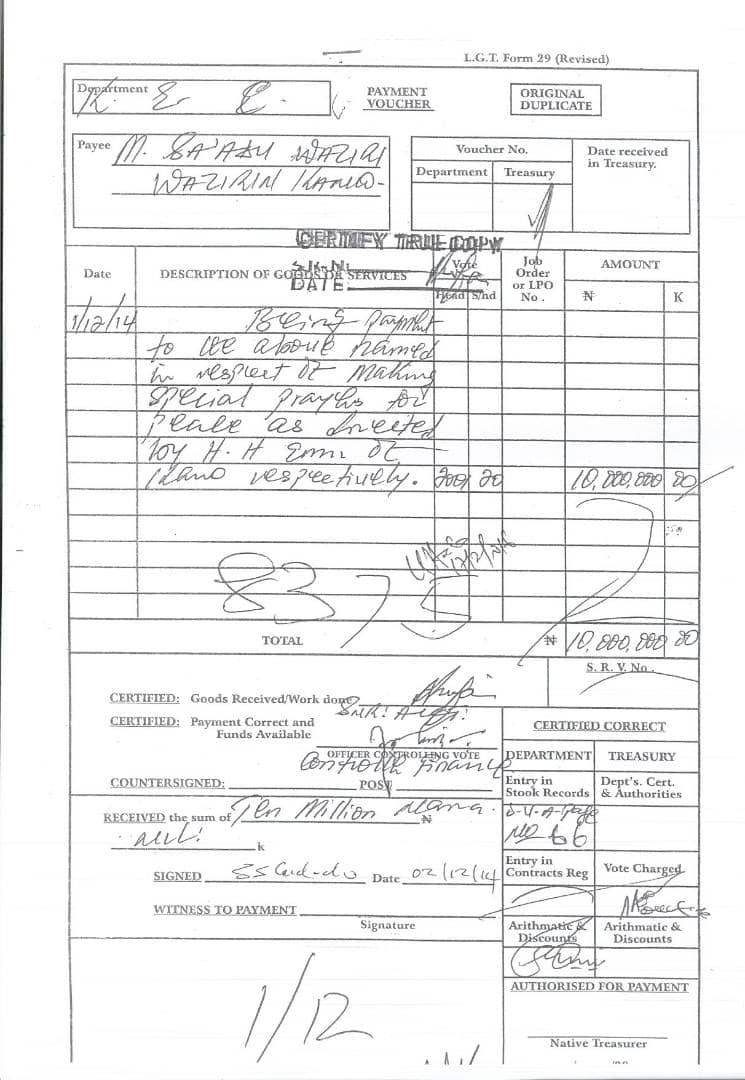 L.G.T. Form 29 (Revised)
Department K. E. C.
PAYMENT
VOUCHER
ORIGINAL
DUPLICATE
Payee M. SA'ADU WAZIRI
WAZIRIN KANO
Voucher No.
Department Treasury
Date received
in Treasury.
CERTIFY TRUE COPY
DATE
Date
DESCRIPTION OF GOODS OR SERVICES
Vote
Head S/hd
Job
Order
or LPO
No.
AMOUNT
₦ K
1/12/14 Being payment
to the above named
in respect of making
special prayers for
peace as directed
by H. H Emir of
Kano respectively. 2001 20 10,000,000 00
83
TOTAL ₦ 10,000,000 00
S. R. V. No.
CERTIFIED: Goods Received/Work done
CERTIFIED: Payment Correct and
Funds Available
OFFICER CONTROLLING VOTE
Controller Finance
COUNTERSIGNED: POST
RECEIVED the sum of Ten Million Naira ₦
k
SIGNED Date 02/12/14
WITNESS TO PAYMENT
Signature
CERTIFIED CORRECT
DEPARTMENT TREASURY
Entry in
Stook Records
Dept's. Cert.
& Authorities
D.V.A Page
NO 66
Entry in
Contracts Reg
Vote Charged
Arithmatic &
Discounts
Arithmatic &
Discounts
AUTHORISED FOR PAYMENT
Native Treasurer
1/12